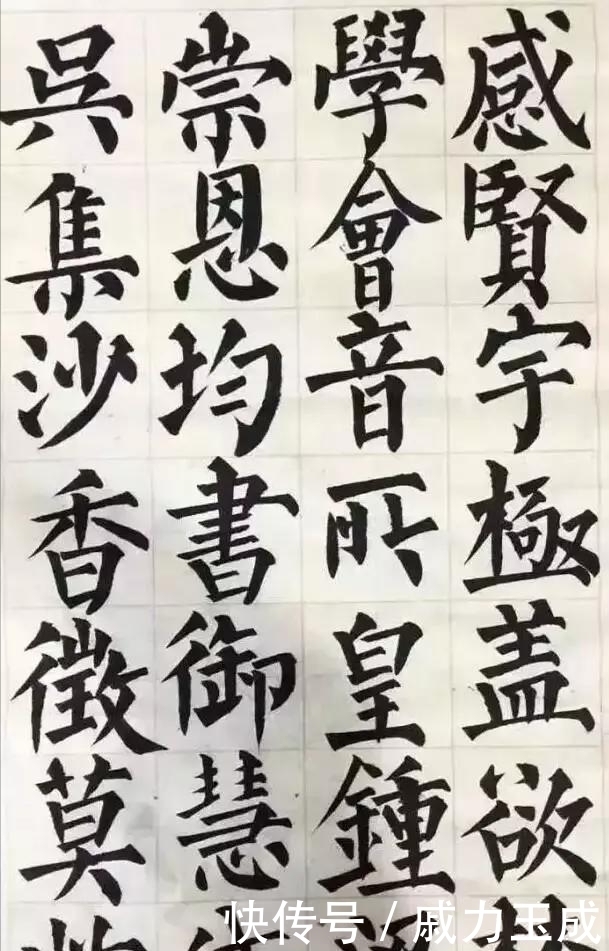 感賢宇極盖欲
學會音所皇鍾
崇恩均書御慧
吳集沙香徵莫
快传号 / 戚力玉成